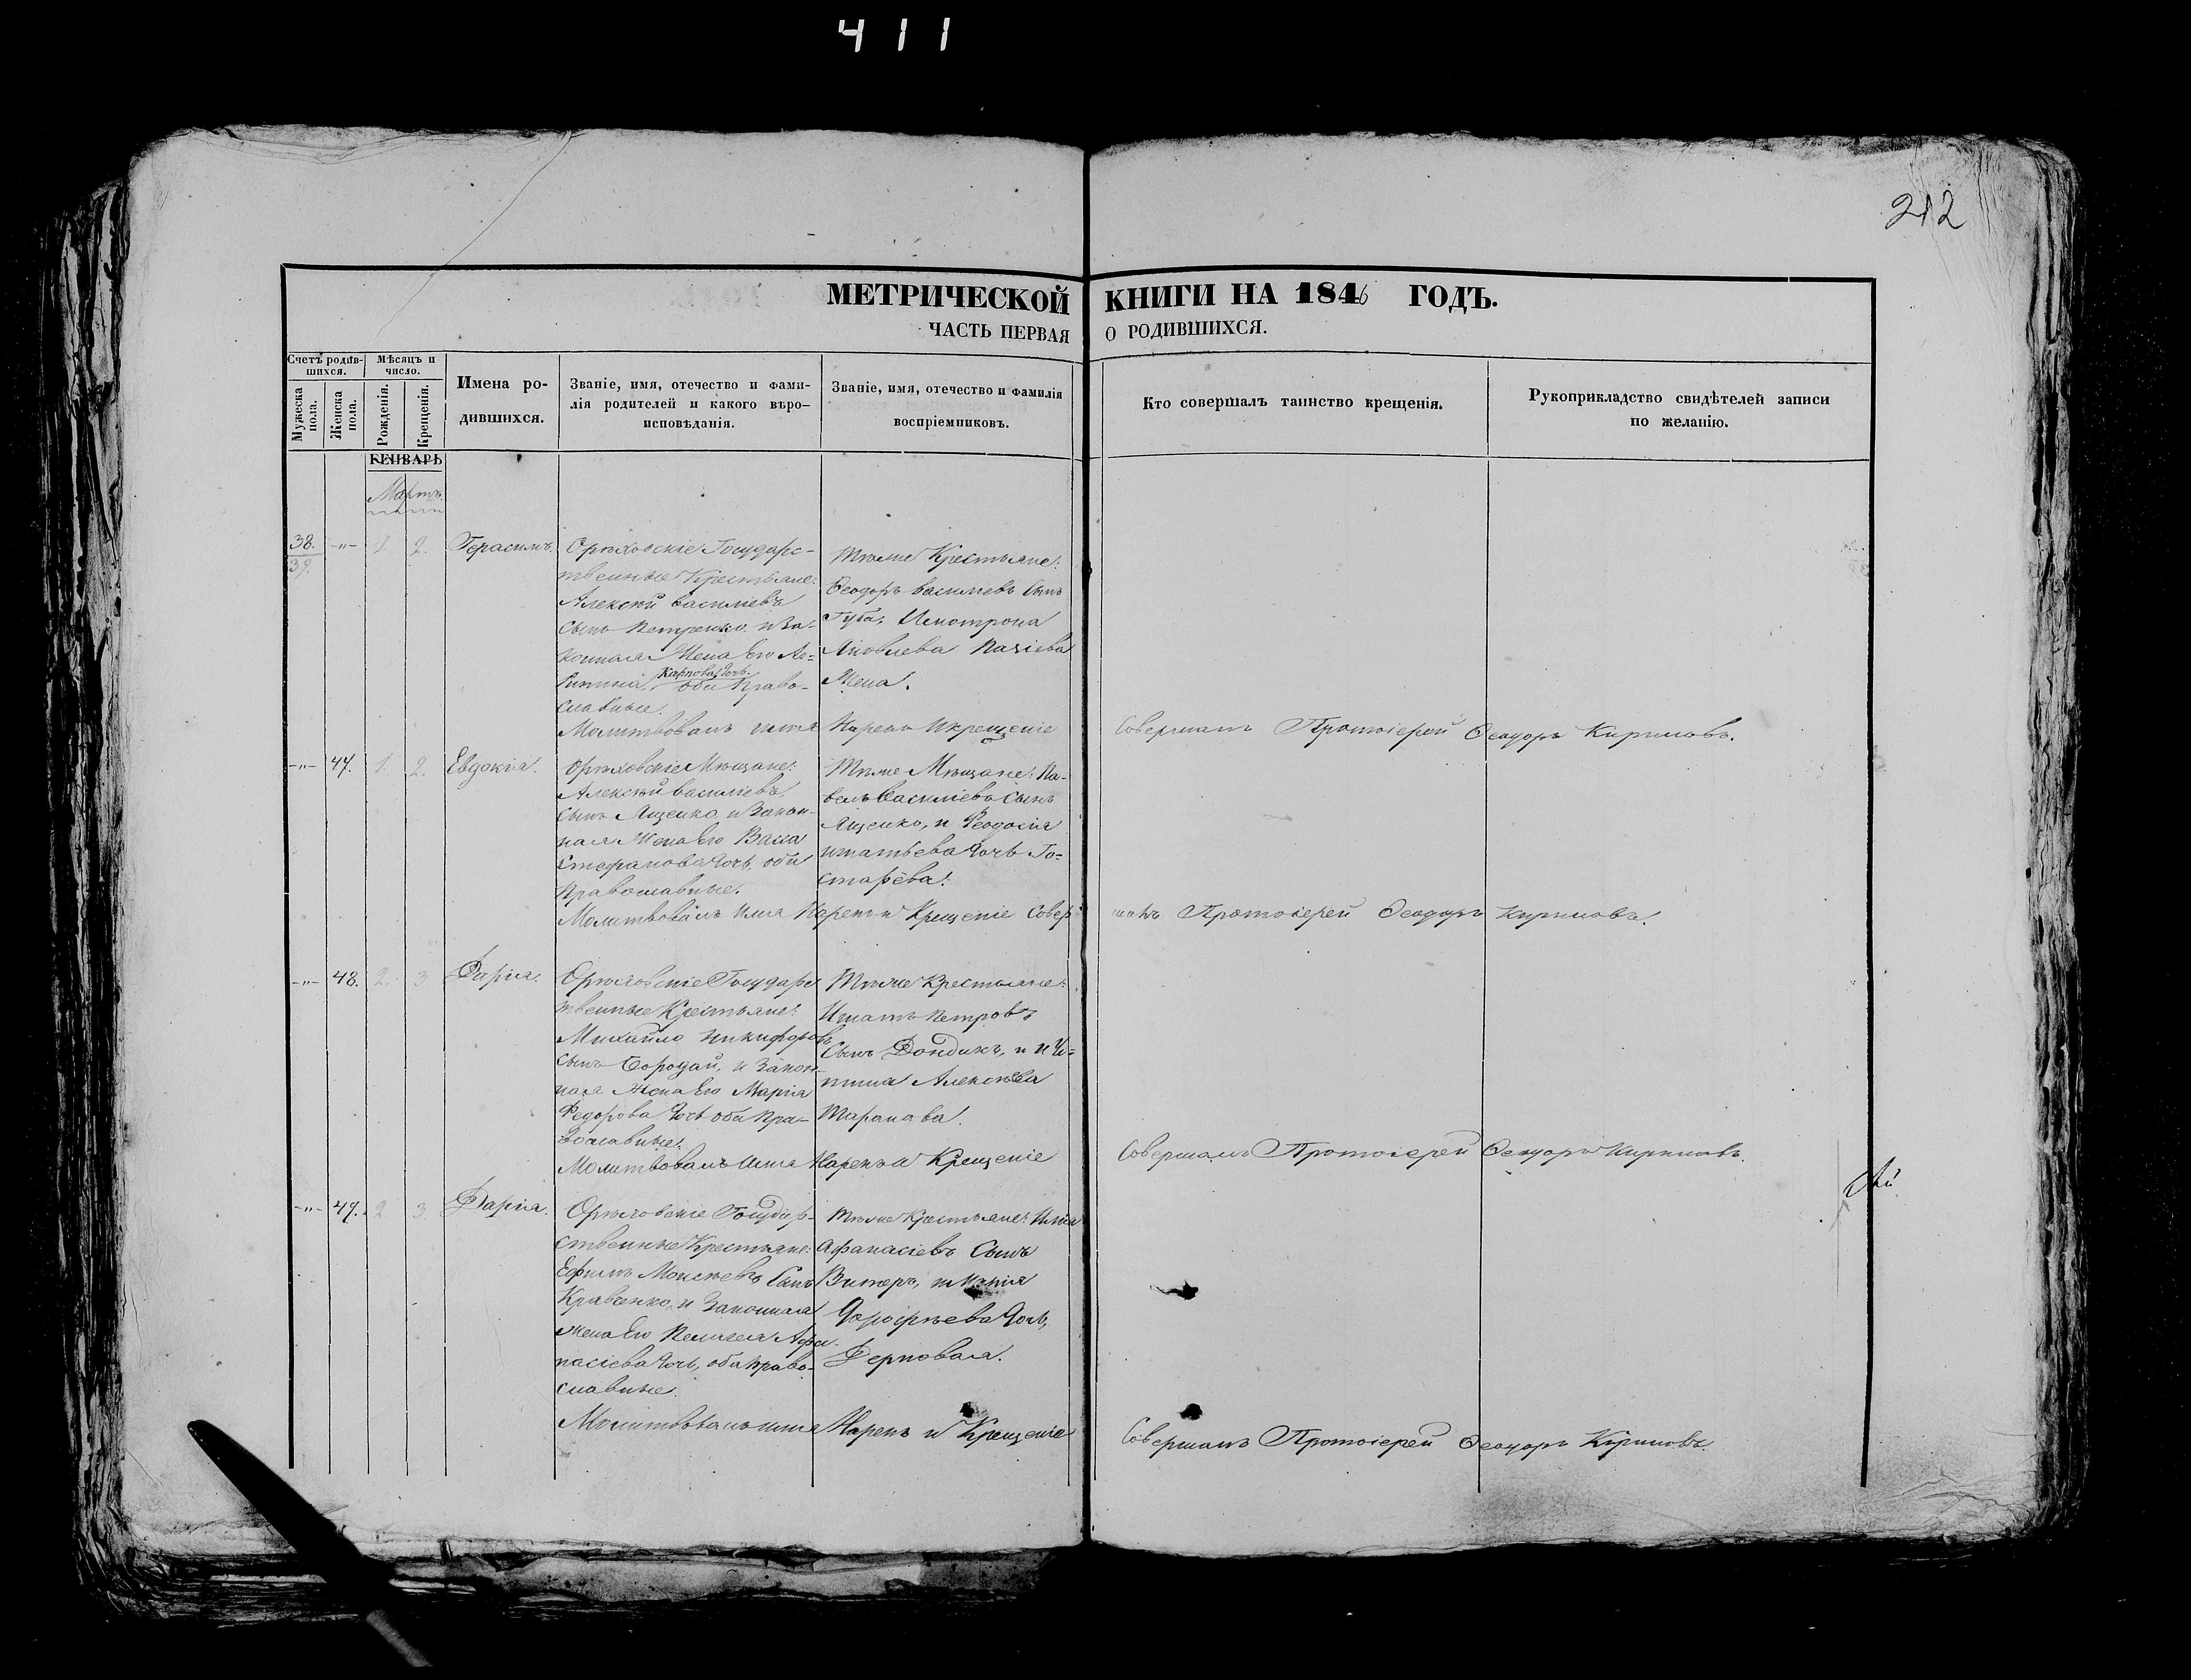 411
212
МЕТРИЧЕСКОЙ КНИГИ НА 1846 ГОДЪ.
ЧАСТЬ ПЕРВАЯ О РОДИВШИХСЯ.
Счетъ родив-
шихся.
Мужеска
пола.
Женска
пола.
Мѣсяцъ и
число.
Рожденія.
Крещенія.
Имена ро-
дившихся.
Званіе, имя, отечество и фами-
лія родителей и какого вѣро-
исповѣданія.
Званіе, имя, отечество и фамилія
воспріемниковъ.
Кто совершалъ таинство крещенія.
Рукоприкладство свидѣтелей записи
по желанію.
ГЕНВАРЬ
Мартъ
38. -"- 1. 2. Герасимъ.
39.
Орѣховскіе Государс-
твенные Крестьяне:
Алексѣй василіевъ
сынъ Петренко и За-
конная Жена Его
Карпова дочь
оба Право-
славные.
Тѣже Крестьяне:
Ѳеодоръ василіевъ сынъ
Губа,
Яковлева
Жена.
Молитвовалъ имя Нарекъ и крещеніе Совершалъ Протоіерей Ѳеодоръ Кириловъ.
-"- 47. 1. 2. Евдокія.
Орѣховскіе Мѣщане:
Алексѣй василіевъ
сынъ Ященко, и Закон-
ная жена Его Васса
Стефанова дочь, оба
православные.
Тѣже Мѣщане: Па-
велъ Василіевъ сынъ
Ященко, и Ѳеодосія
игнатьева дочь Го-
старева.
Молитвовалъ имя Нарекъ и Крещеніе Совер шалъ Протоіерей Ѳеодоръ Кириловъ.
-"- 48. 2. 3 Дарія.
Орѣховскіе Государс
твенные Крестьяне:
Михайло никифоровъ
сынъ Бородай, и Закон-
ная жена Его Марія
Федорова дочь оба Пра-
вославные.
Тѣже Крестьяне:
Игнатъ петровъ
Сынъ Дондикъ, и
Алексѣева
Таранова.
Молитвовалъ имя Нарекъ и Крещеніе Совершалъ Протоіерей Ѳеодоръ Кириловъ.
-"- 49. 2. 3. Дарія.
Орѣховскіе Государ-
ственные Крестьяне:
Ефимъ Моисѣевъ Сынъ
Кравченко, и Законная
жена Его Пелагея Афа-
насіева дочь, оба право-
славные.
Тѣже Крестьяне: Илія
Афанасіевъ Сынъ
Витеръ, и Марія
Дорофѣева дочь,
Дерновая.
Молитвовалъ имя Нарекъ и Крещеніе Совершалъ Протоіерей Ѳеодоръ Кириловъ.